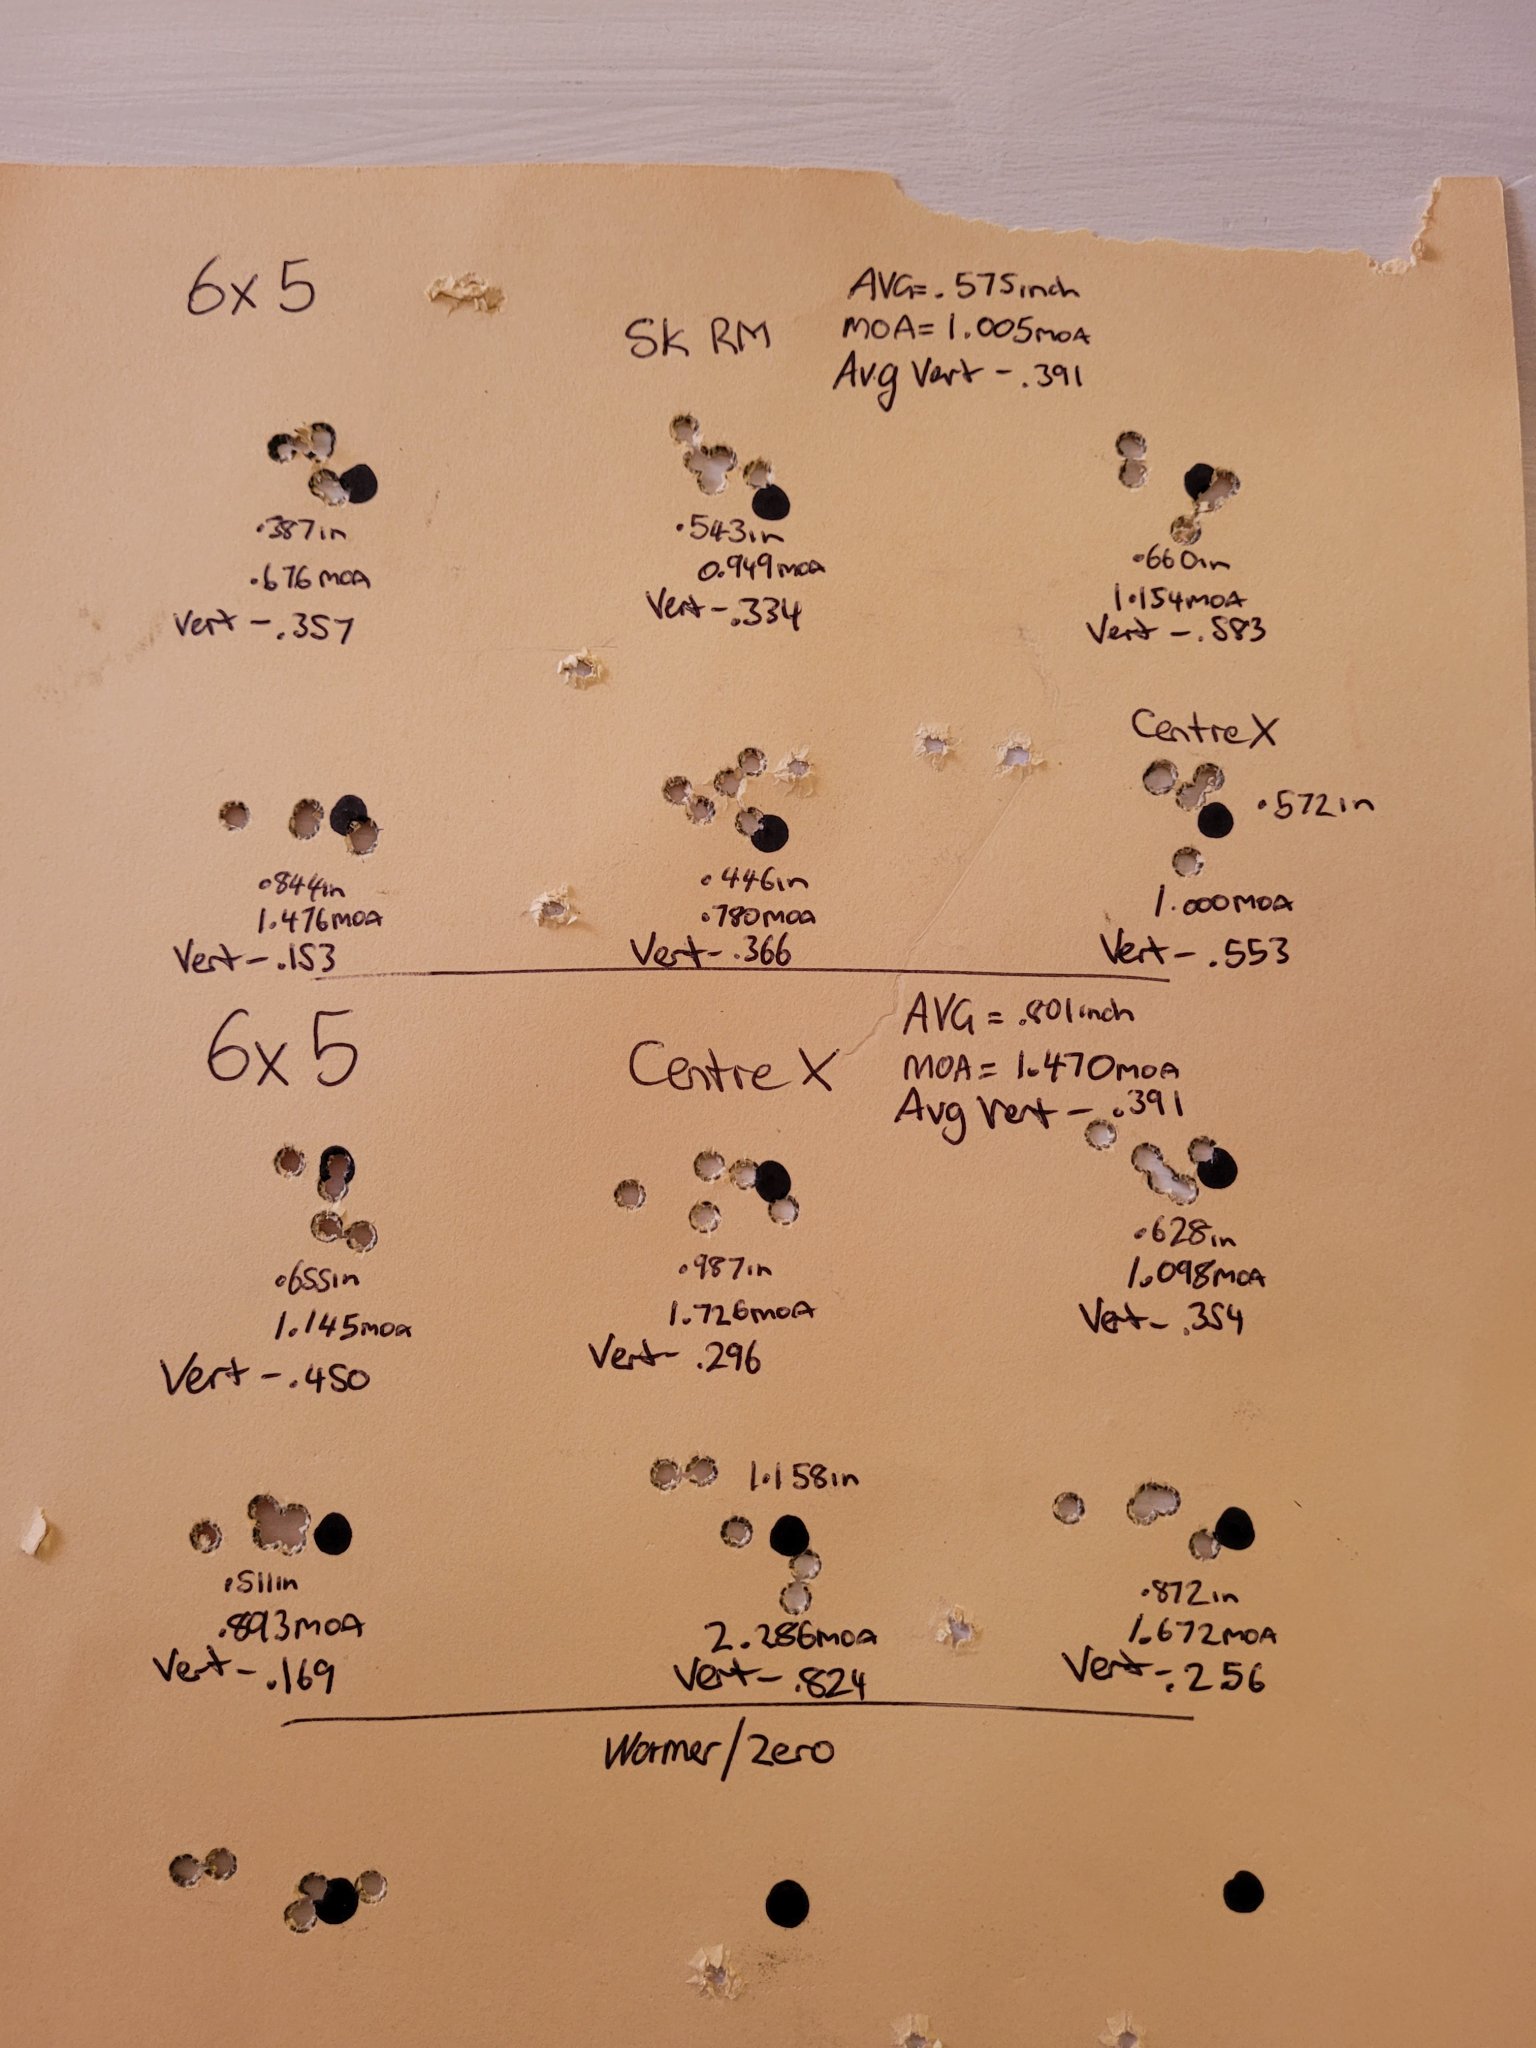 6x5
SK RM
AVG= .575inch
MOA= 1.005MOA
Avg Vert - .391
.387in
.676MOA
Vert - .357
.543in
0.949MOA
Vert - .334
.660in
1.154MOA
Vert - .583
.844in
1.476MOA
Vert - .153
.446in
.780MOA
Vert - .366
Centre X
.572in
1.000MOA
Vert - .553
6x5
Centre X
AVG = .801inch
MOA = 1.470MOA
Avg Vert - .391
.655in
1.145MOA
Vert - .450
.987in
1.726MOA
Vert - .296
.628in
1.098MOA
Vert - .354
.511in
.893MOA
Vert - .169
1.158in
2.286MOA
Vert - .824
.872in
1.672MOA
Vert - .256
Warmer/Zero